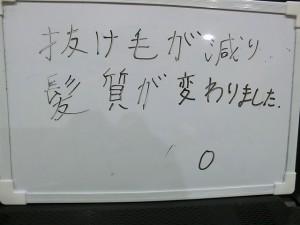 抜け毛が減り
髪質が変わりました.